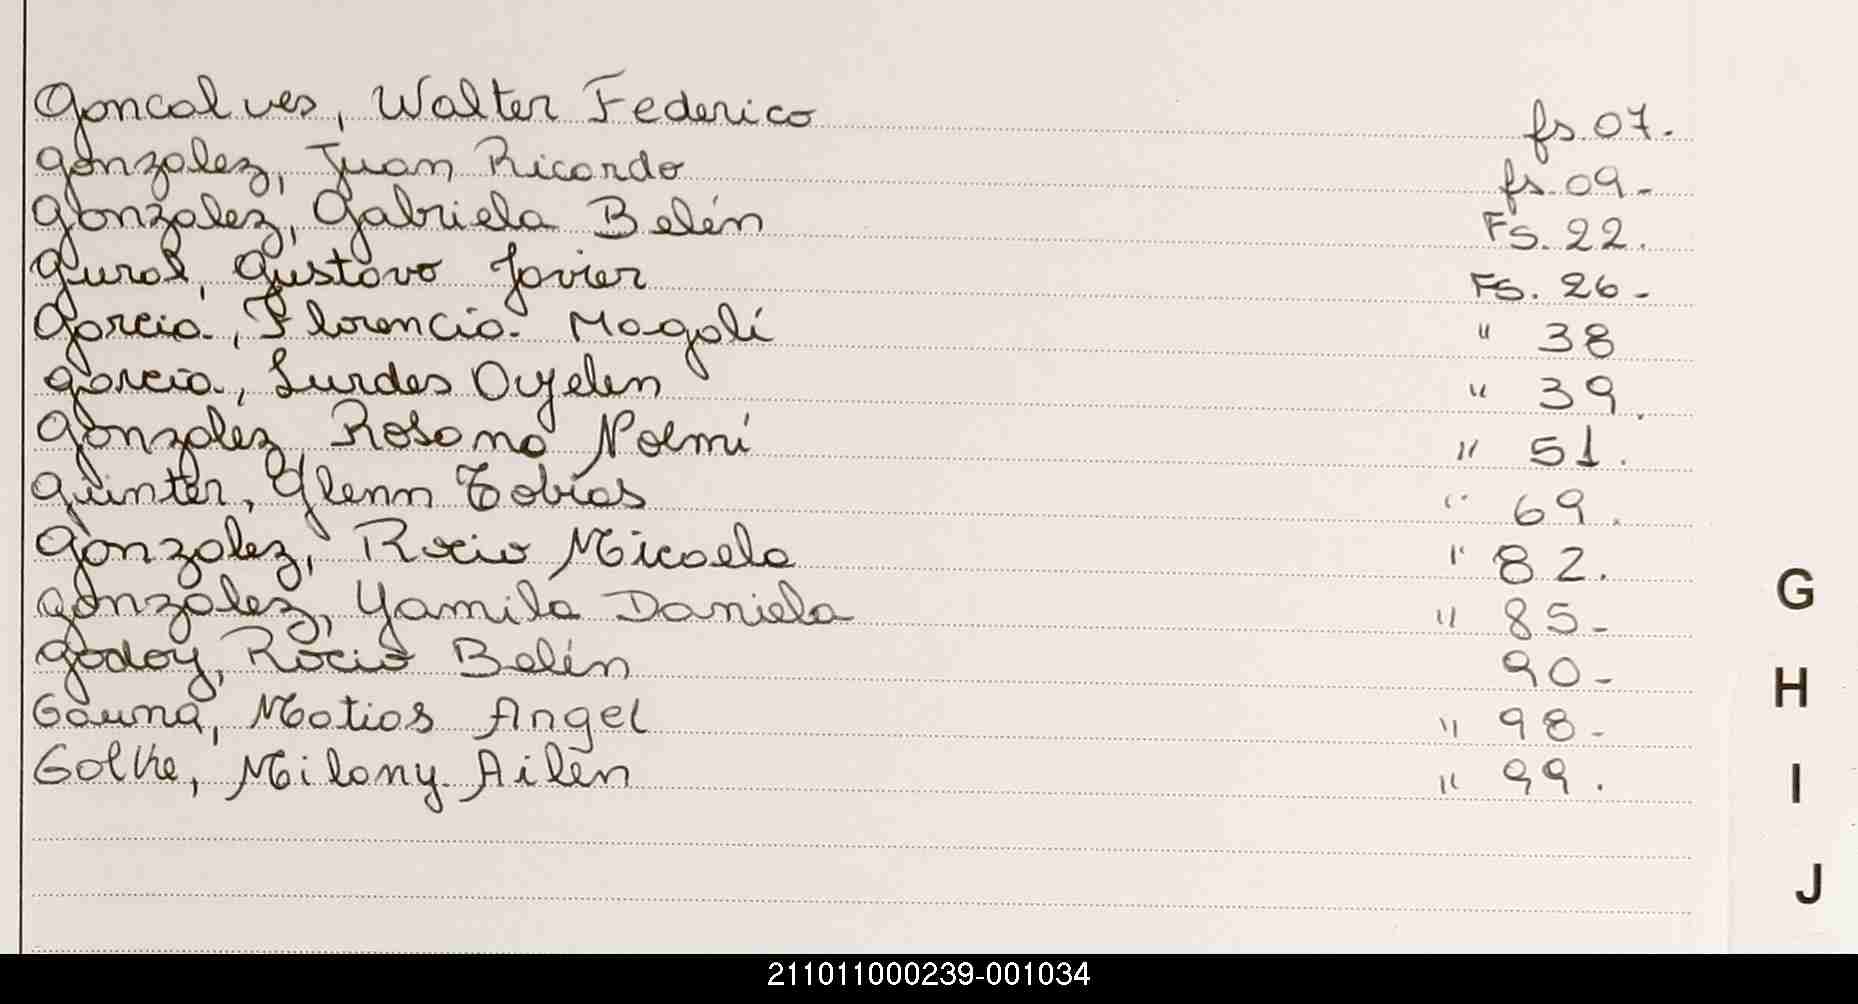 Goncalves, Walter Federico fs. 07.
Gonzalez, Juan Ricardo fs. 09-
Gonzalez, Gabriela Belén Fs. 22.
Gural, Gustavo Javier Fs. 26-
Garcia, Florencia Magalí " 38
Garcia, Lurdes Ayelen " 39.
Gonzalez, Rosana Noemí " 51.
Günter, Glenn Tobias " 69.
Gonzalez, Rocio Micaela " 82.
Gonzalez, Yamila Daniela " 85-
Godoy, Rocio Belén 90-
Gauna, Matias Angel " 98-
Golke, Milany Ailén " 99.
G
H
I
J
211011000239-001034